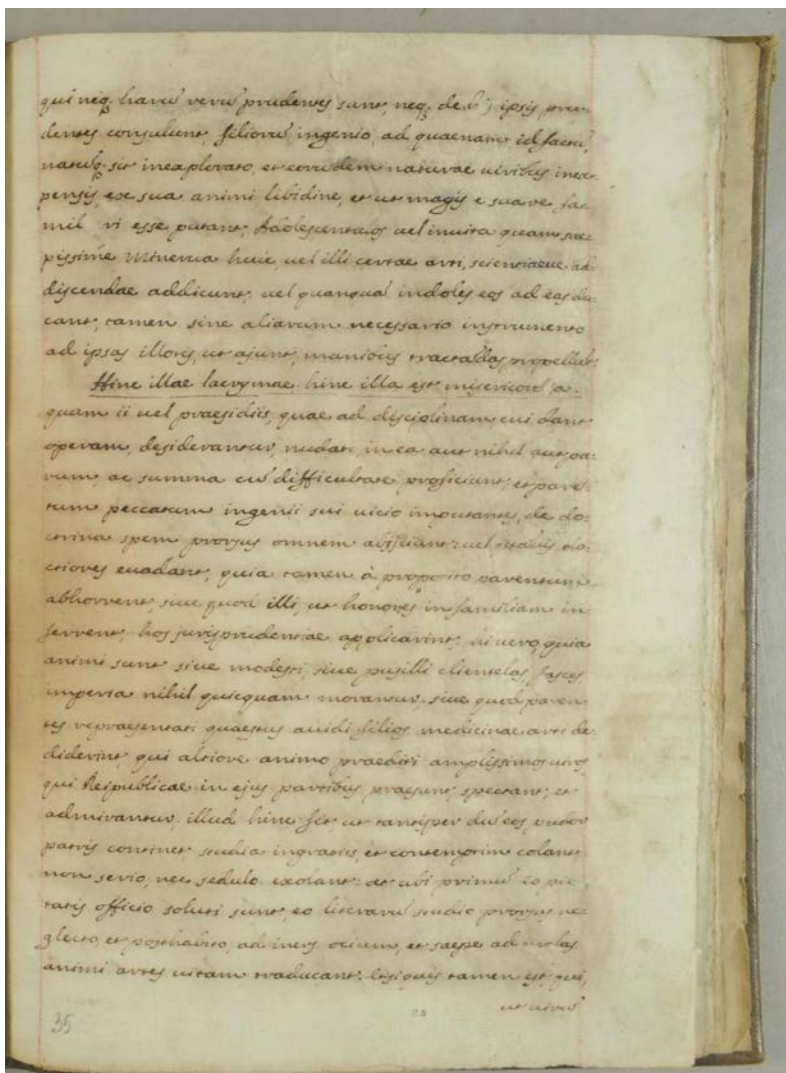 qui neq; harū rerū prudentes sunt, neq; de ijs ipsis pru-
dentes consulunt, filiorū ingenio, ad quaenam id factū,
natūq; sit inexplorato, et eorumdem naturae viribus inex-
pensis, exe sua animi libidine, et ut magis e suave fa-
mil ri esse putant, Adolescentulos uel inuita quam sae-
pissime Minerua huic, uel illi certae arti, scientiaeue ad-
discendae addicunt, uel quanquā indoles eos ad eas du-
cant, tamen sine aliarum necessario instrumento
ad ipsas illotis, ut ajunt, manibus tractandas propellunt.
Hinc illae lacrymae hinc illa est misericord a.
quum ii uel praesidiis, quae ad disciplinam, cui dant
operam, desiderantur, nudati, in ea aut nihil aut pa-
rum, ac summa cū difficultate proficiant; et paren-
tum peccatum ingenii sui uicio imputantes, de do-
ctrina spem prorsus omnem abijciant: uel do-
ctiores euadant, quia tamen à proposito parentum
abhorrent, siue quod illi, ut honores in familiam in-
ferrent, hos jurisprudentiae applicarint: hi uero, quia
animi sunt siue modesti, siue pusilli clientelas, fasces
imperia nihil quicquam morantur. siue quod paren-
tes repraesentati quaestus auidi filios medicinae arti de-
diderint qui altiore animo praediti amplissimos uiros,
qui Reipublicae in ejus partibus praesunt, spectant, et
admirantur. illud hinc fit ut tantisper dū eos, pudor
patris continet, studia ingratiis, et contemptim colant
non serio, nec sedulo excolant: at ubi primū eo pie-
tatis officio soluti sunt, eo literarū studio prorsus ne-
glecto, et posthabito, ad iners ocium, et saepe ad malas
animi artes uitam traducant. Etsi quis tamen est, qui,
ut uirū
35